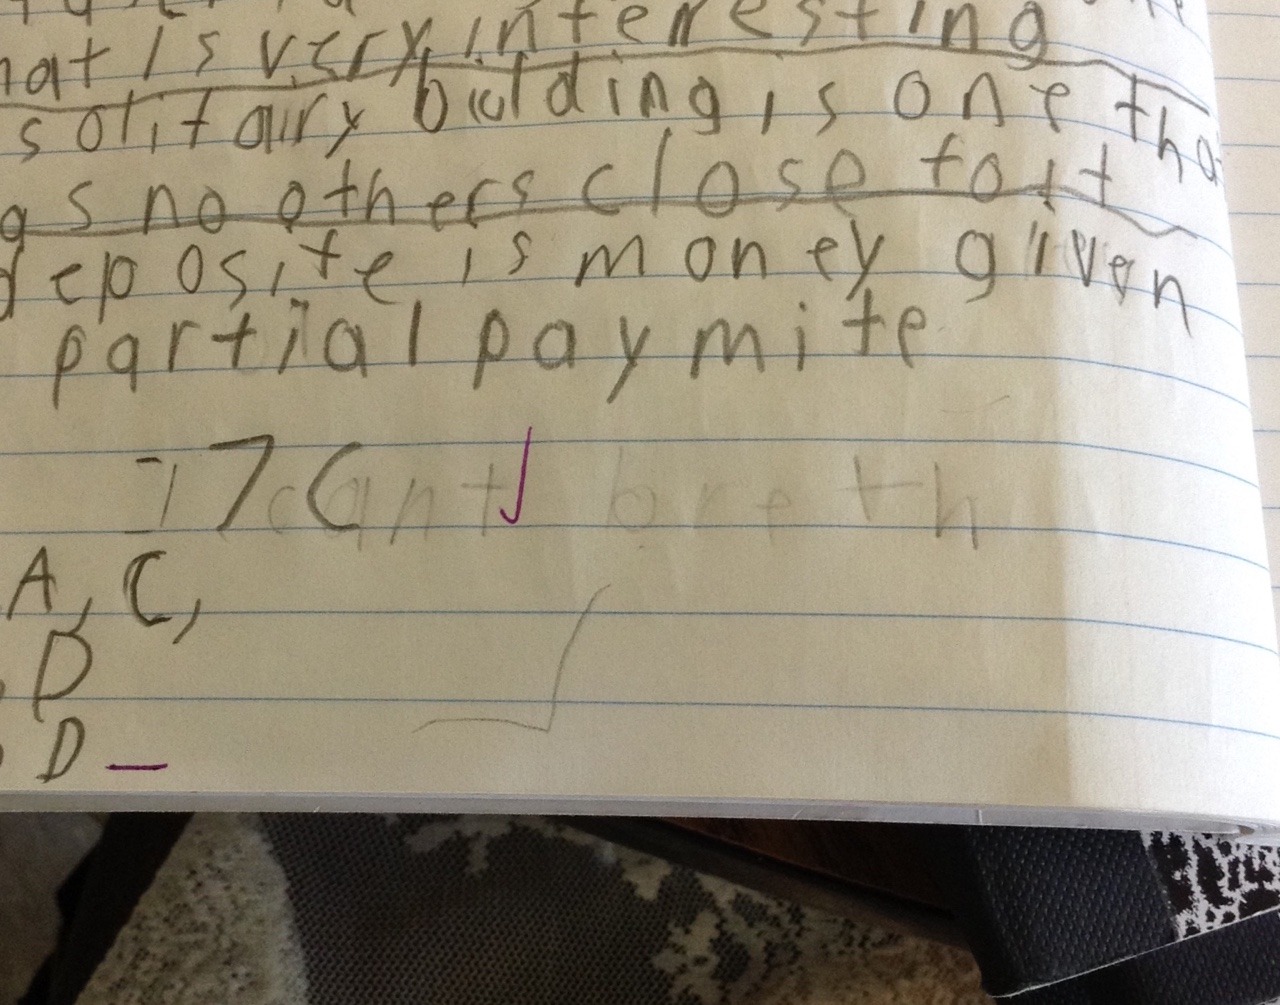 hat is very interesting
solitairy building is one tha
as no others close to it
deposite is money given
partial paymite
17 C
cant breth
A, C,
D
D